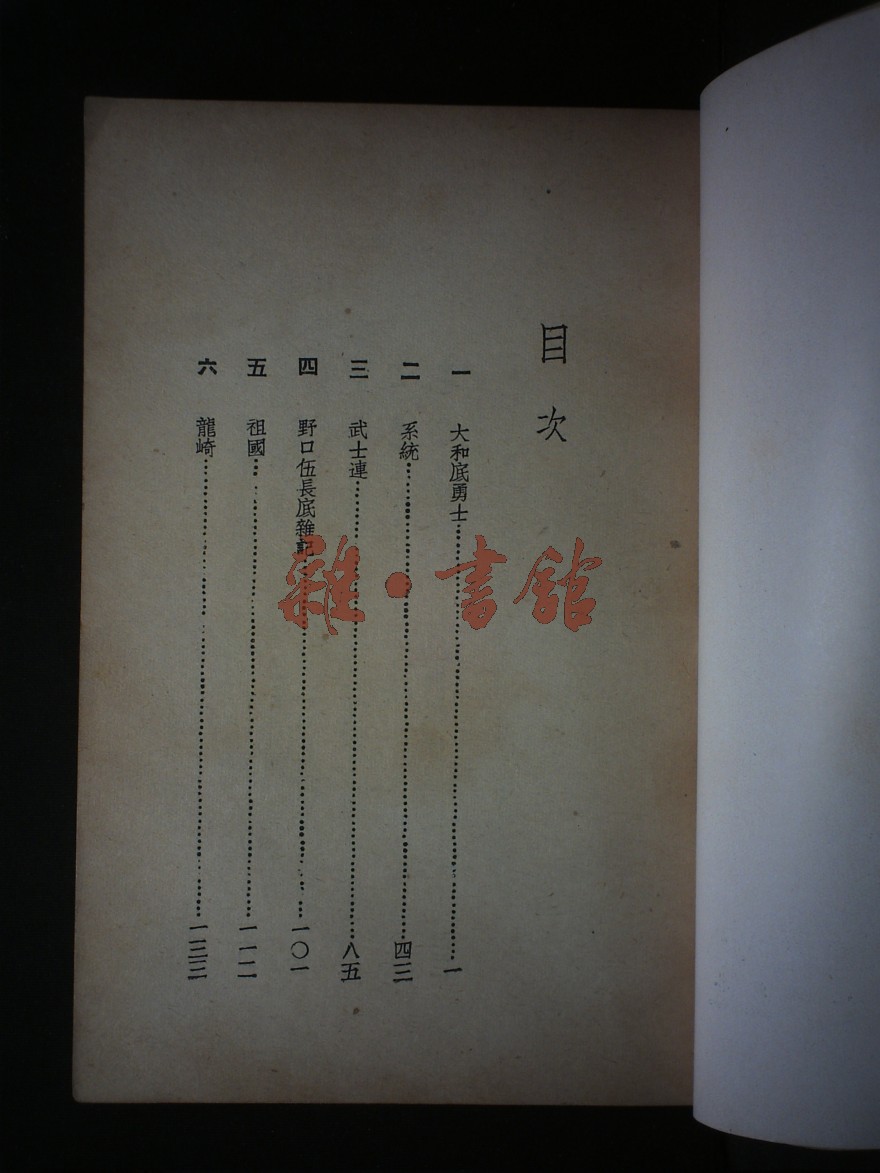 目次
一 大和底勇士……一
二 系統……四三
三 武士連……八五
四 野口伍長底雜記……一〇一
五 祖國……
六 龍崎……一三三
雜·書館